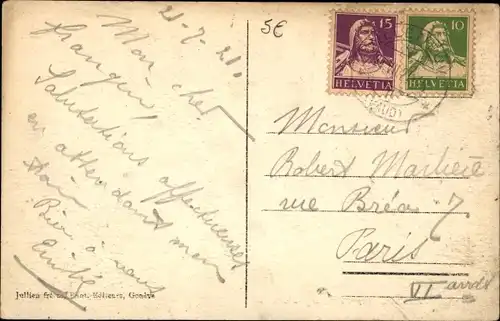 21-7-21
5€
Mon cher
frangin!
Salutations affectueuses
en attendant mon
Bien à vous
Emile
15
HELVETIA
10
HELVETIA
(VAUD)
Monsieur
Robert
rue Bréa 7
Paris
VI arrdt
Jullien frères, Phot.-Éditeurs, Genève